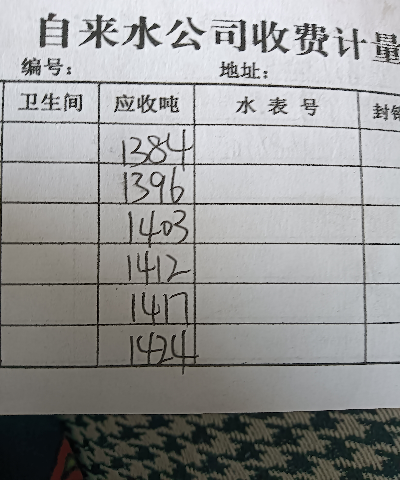 自来水公司收费计量
编号： 地址：
卫生间 应收吨 水表号 封
1384
1396
1403
1412
1417
1424